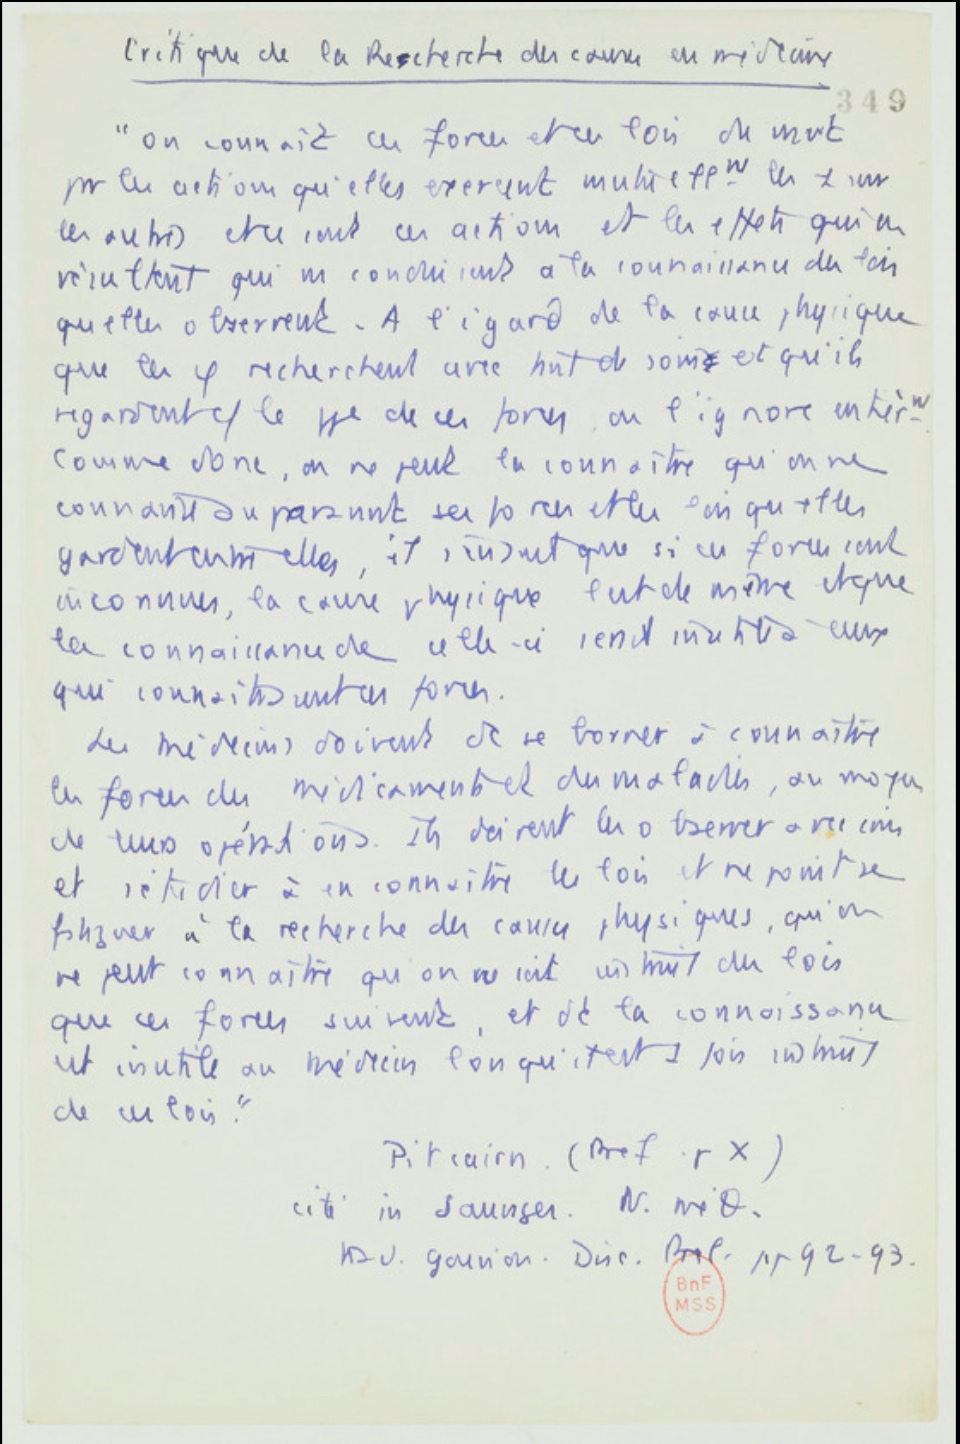 Critique de la Recherche des causes en médecine
349
"On connaît ces forces et ces lois du mvt
pr les actions qu'elles exercent mutuellnt les 1 sur
les autres et ce sont ces actions et les effets qui en
résultent qui ns conduisent à la connaissance des lois
qu'elles observent. A l'égard de la cause physique
que les φ recherchent avec tant de soins et qu'ils
regardent c/ le ppe de ces forces, on l'ignore entièrnt
Comme donc, on ne peut la connaître qu'on ne
connaisse auparavant ses forces et les lois qu'elles
gardent entre elles, il s'ensuit que si ces forces sont
inconnues, la cause physique l'est de même et que
la connaissance de celle-ci serait inutile à ceux
qui connaîtraient ces forces.
Les médecins doivent dc se borner à connaître
les forces des médicaments et des maladies, au moyen
de leurs opérations. Ils doivent les observer avec soin
et s'étudier à en connaître les lois et ne point se
fatiguer à la recherche des causes physiques, qu'on
ne peut connaître qu'on ne soit instruit des lois
que ces forces suivent, et dt la connaissance
est inutile au médecin lorsqu'il est 1 fois instruit
de ces lois."
Pitcairn. (Pref. p X)
cité in Sauvages. N. méth.
trad. Gouvion. Disc. Prel. pp 92-93.
BnF
MSS